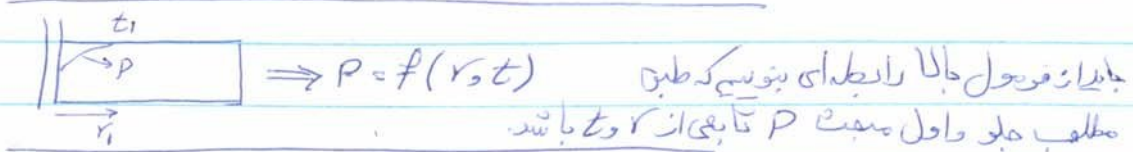 t₁
P
r₁
⟹ P = f(r و t)
باید از فرمول بالا رابطه‌ای بنویسیم که طبق
مطلب جلو و اول مبحث P تابعی از r و t باشد.